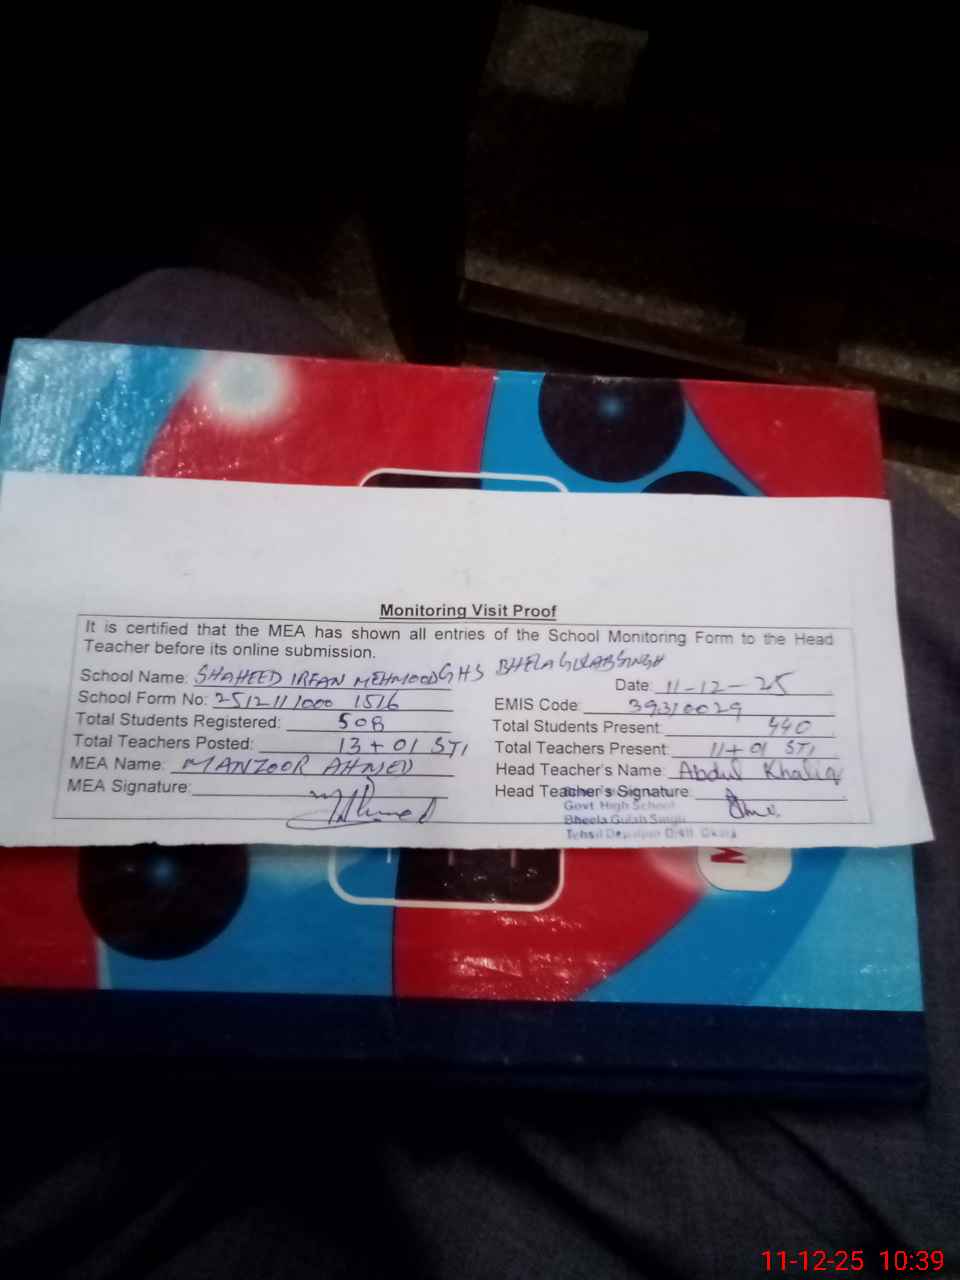 Monitoring Visit Proof
It is certified that the MEA has shown all entries of the School Monitoring Form to the Head
Teacher before its online submission.
School Name: SHAHEED IRFAN MEHMOOD GHS BHELA GULAB SINGH
Date: 11-12-25
School Form No: 2512111000 1516
EMIS Code: 39310029
Total Students Registered: 508
Total Students Present: 440
Total Teachers Posted: 13 + 01 STI
Total Teachers Present: 11 + 01 STI
MEA Name: MANZOOR AHMED
Head Teacher's Name: Abdul Khaliq
MEA Signature:
Head Teacher's Signature
Govt High School
Bheela Gulab Singh
Tehsil Depalpur Distt. Okara
11-12-25 10:39